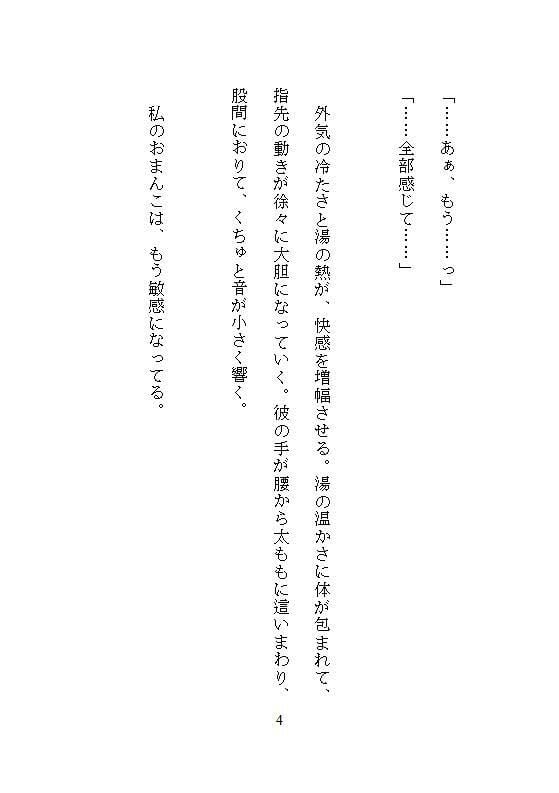 「……あぁ、もう……っ」
「……全部感じて……」
外気の冷たさと湯の熱が、快感を増幅させる。湯の温かさに体が包まれて、
指先の動きが徐々に大胆になっていく。彼の手が腰から太ももに這いまわり、
股間におりて、くちゅと音が小さく響く。
私のおまんこは、もう敏感になってる。
4